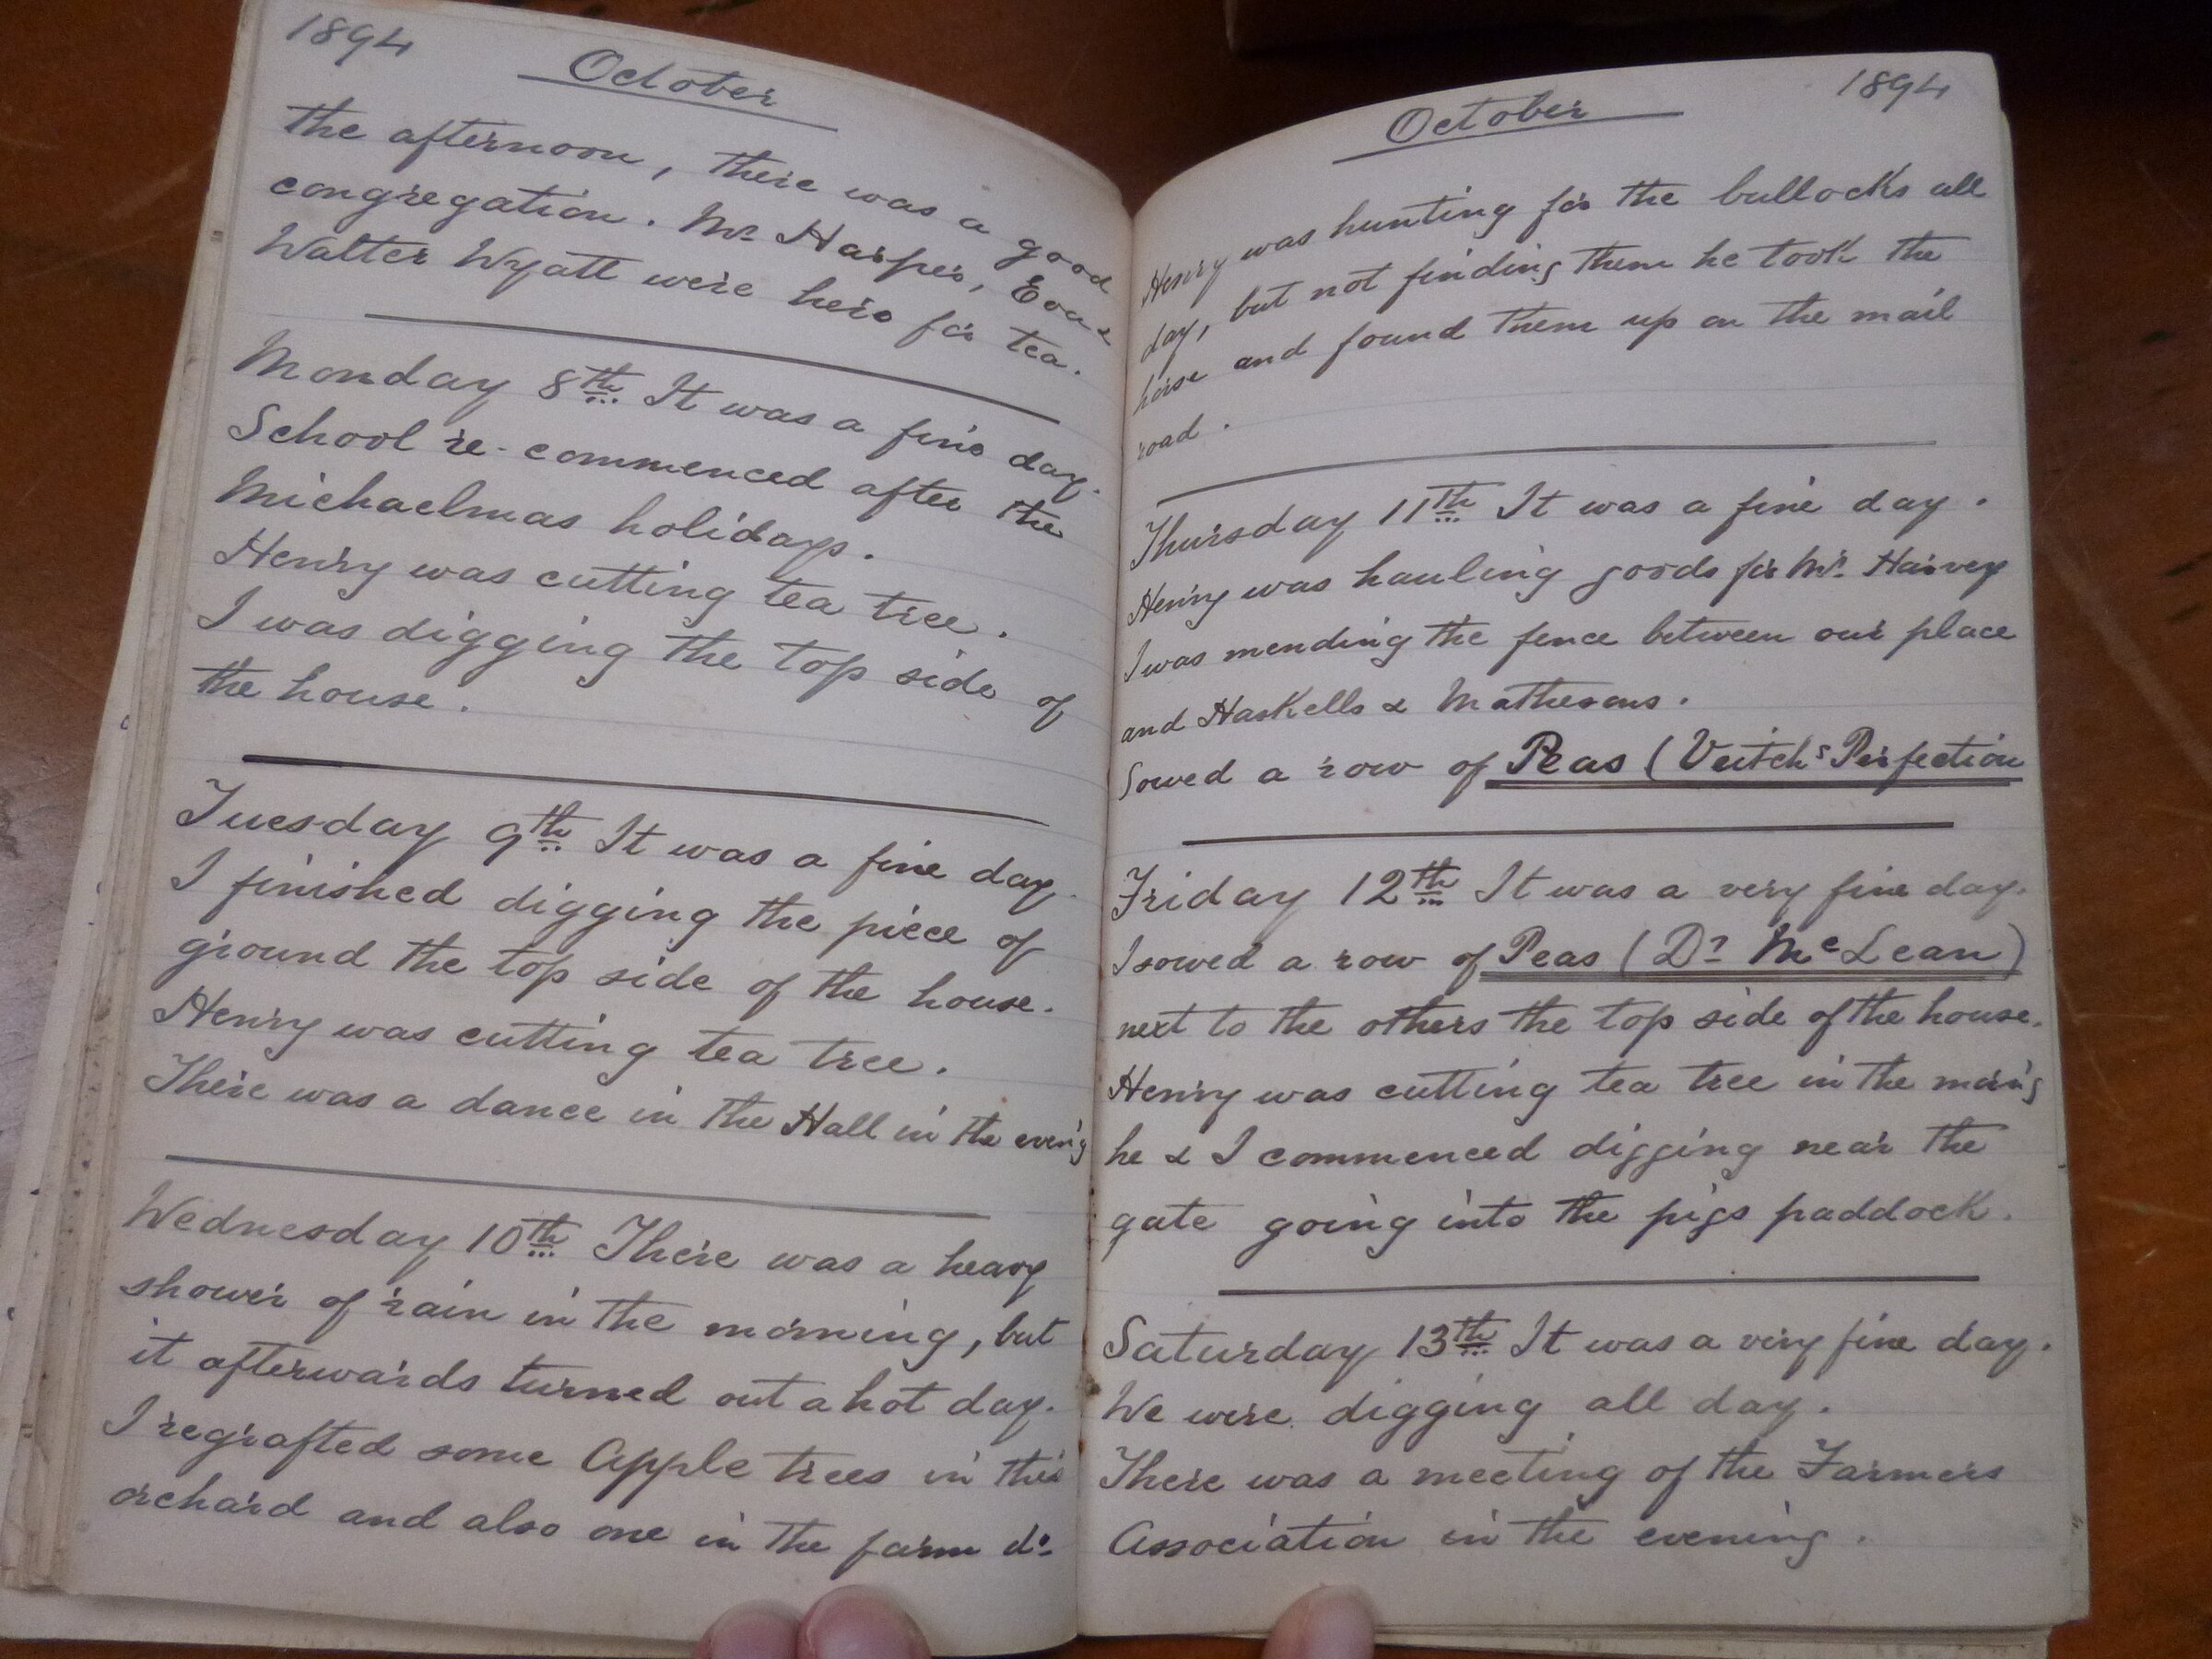 1894
October
the afternoon, there was a good
congregation. Mr Harper, Eva &
Walter Wyatt were here for tea.
Monday 8th It was a fine day.
School re-commenced after the
Michaelmas holidays.
Henry was cutting tea tree.
I was digging the top side of
the house.
Tuesday 9th It was a fine day.
I finished digging the piece of
ground the top side of the house.
Henry was cutting tea tree.
There was a dance in the Hall in the even'g
Wednesday 10th There was a heavy
shower of rain in the morning, but
it afterwards turned out a hot day.
I regrafted some Apple trees in this
orchard and also one in the farm do.
October
1894
Henry was hunting for the bullocks all
day, but not finding them he took the
horse and found them up on the mail
road.
Thursday 11th It was a fine day.
Henry was hauling goods for Mr. Harvey
I was mending the fence between our place
and Haskells & Mathesons.
Sowed a row of Peas (Veitch's Perfection
Friday 12th It was a very fine day.
I sowed a row of Peas (Dr McLean)
next to the others the top side of the house.
Henry was cutting tea tree in the morn'g
he & I commenced digging near the
gate going into the pigs paddock.
Saturday 13th It was a very fine day.
We were digging all day.
There was a meeting of the Farmers
Association in the evening.